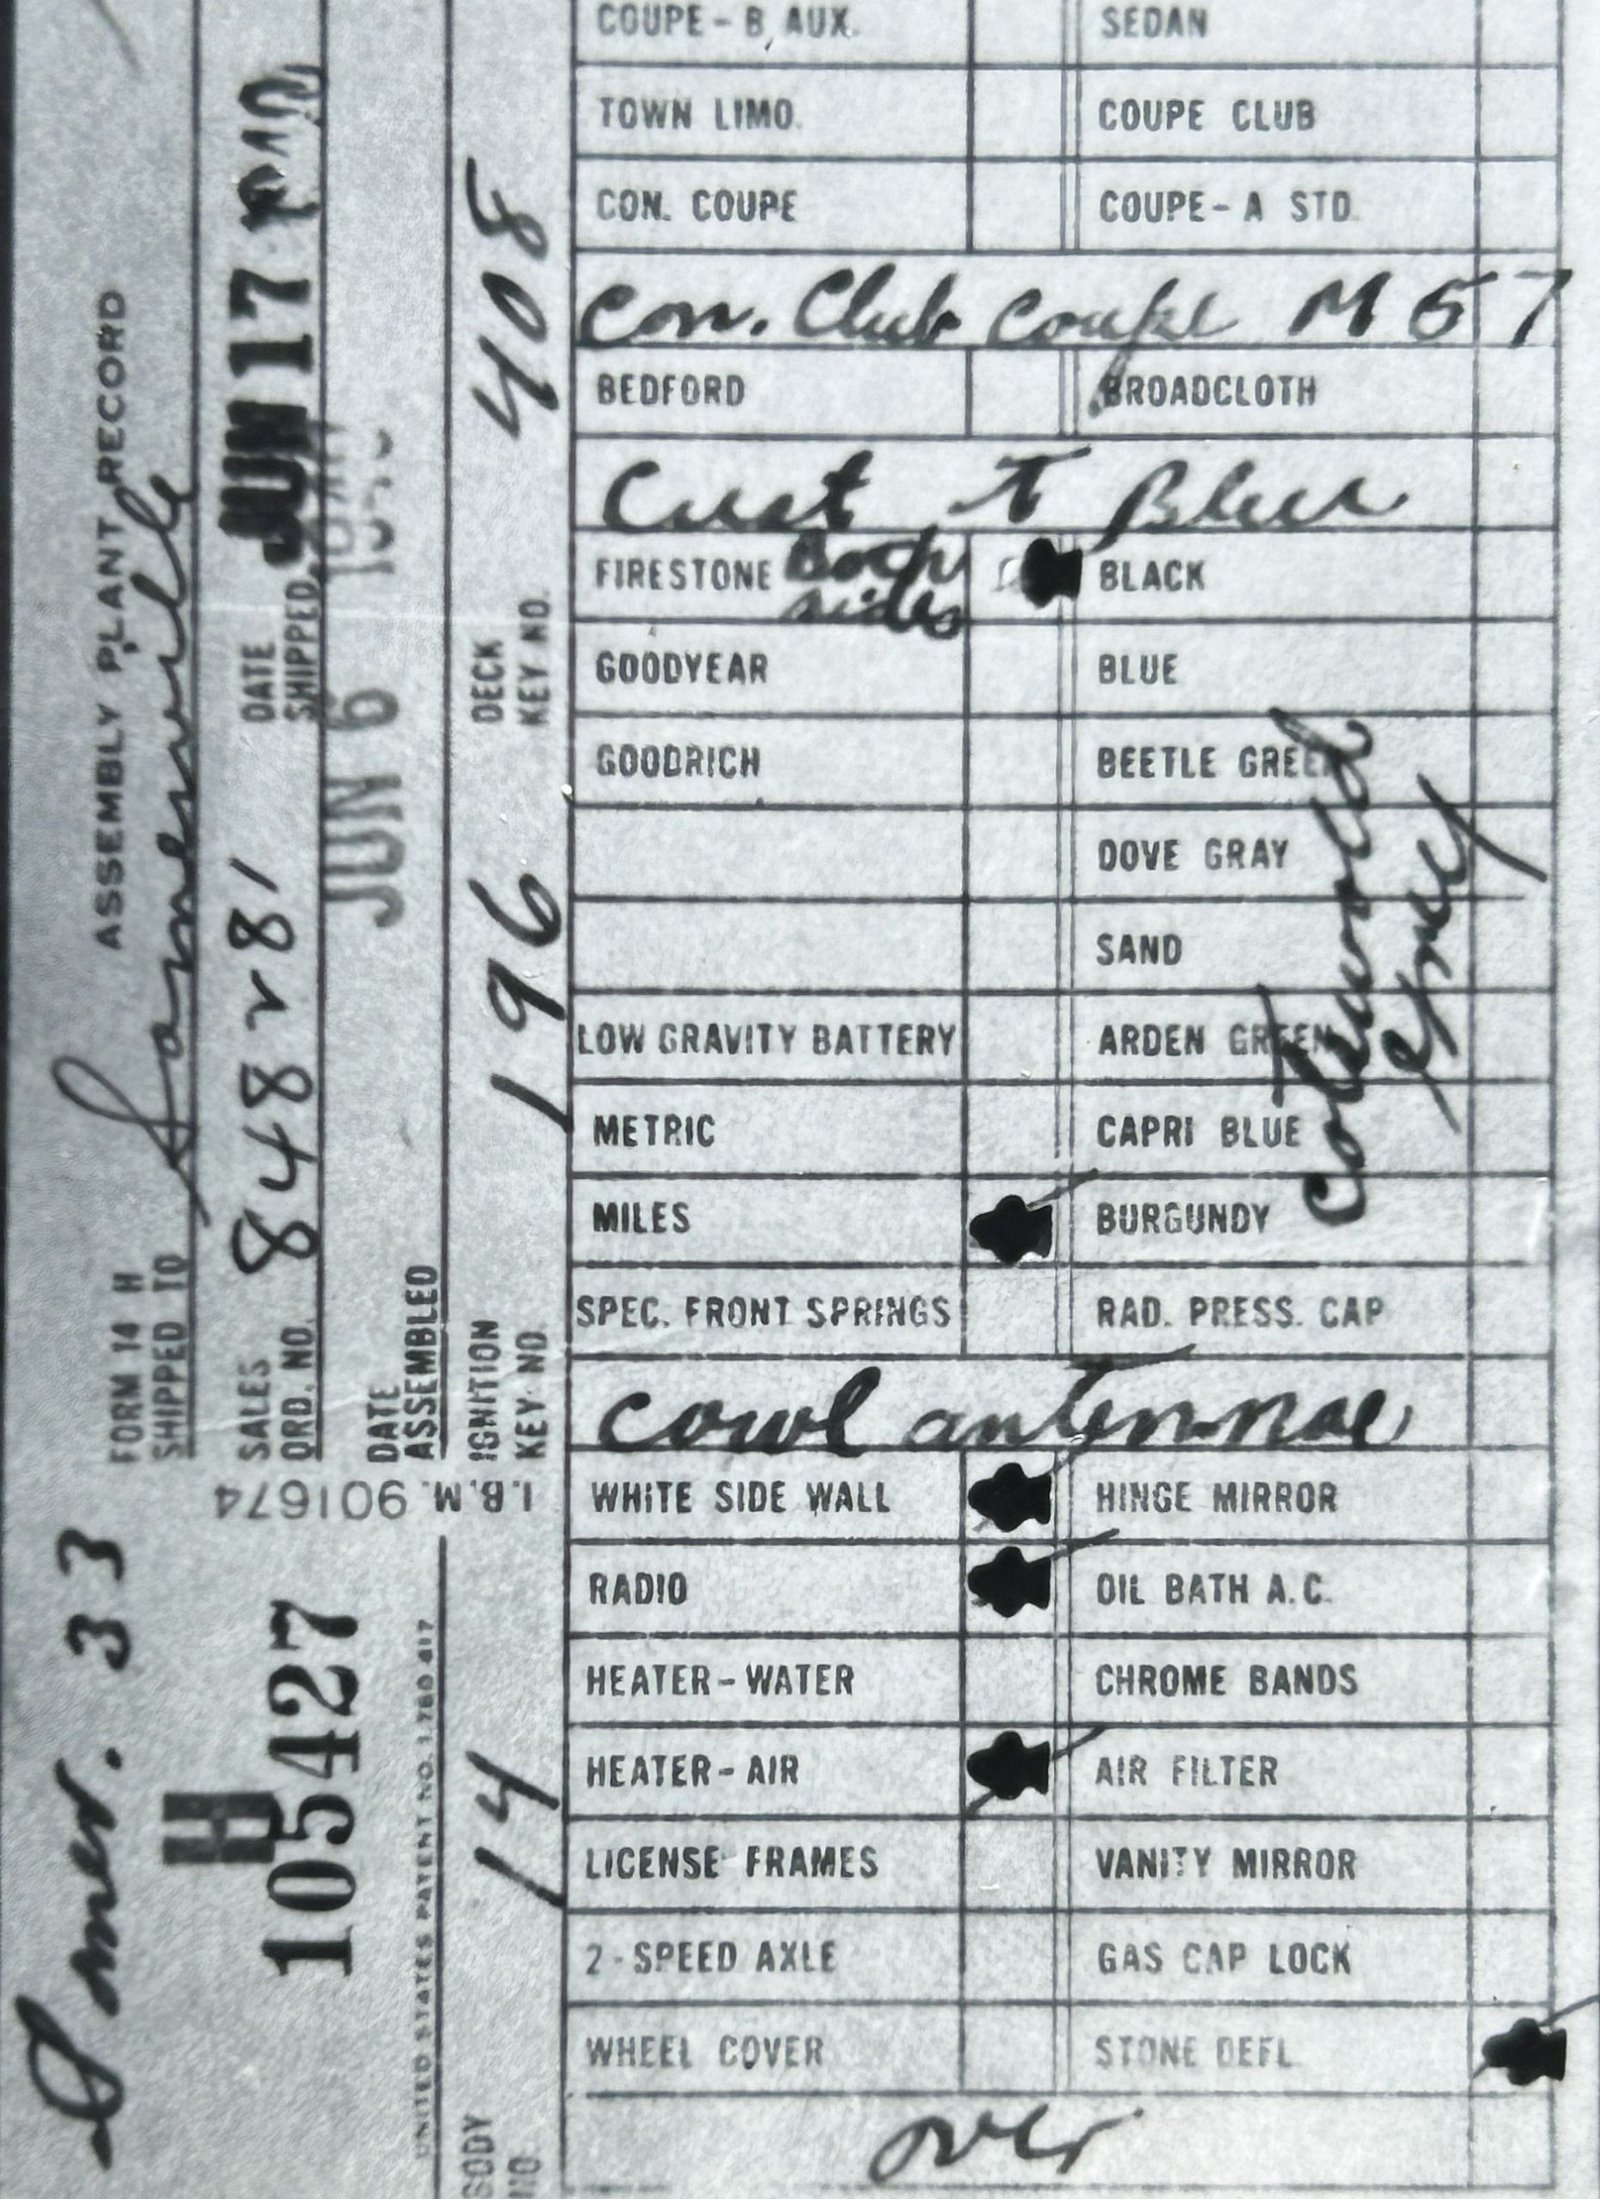 ASSEMBLY PLANT RECORD
FORM 14 H
SHIPPED TO Somerville
SALES ORD. NO. 848281
DATE SHIPPED JUN 17
DATE ASSEMBLED JUN 6
IGNITION KEY NO. 196
DECK KEY NO. 408
I.B.M. 901674
33
H
105427
UNITED STATES PATENT NO. 1,780,417
BODY NO. 14
COUPE - B. AUX. SEDAN
TOWN LIMO. COUPE CLUB
CON. COUPE COUPE - A STD.
Con. Club Coupe M 57
BEDFORD BROADCLOTH
Cust T Blue
FIRESTONE Both sides BLACK
GOODYEAR BLUE
GOODRICH BEETLE GREEN
DOVE GRAY
SAND
LOW GRAVITY BATTERY ARDEN GREEN
METRIC CAPRI BLUE
MILES BURGUNDY
Cotswold
Grey
SPEC. FRONT SPRINGS RAD. PRESS. CAP
Cowl antennae
WHITE SIDE WALL HINGE MIRROR
RADIO OIL BATH A.C.
HEATER - WATER CHROME BANDS
HEATER - AIR AIR FILTER
LICENSE FRAMES VANITY MIRROR
2 - SPEED AXLE GAS CAP LOCK
WHEEL COVER STONE DEFL.
over